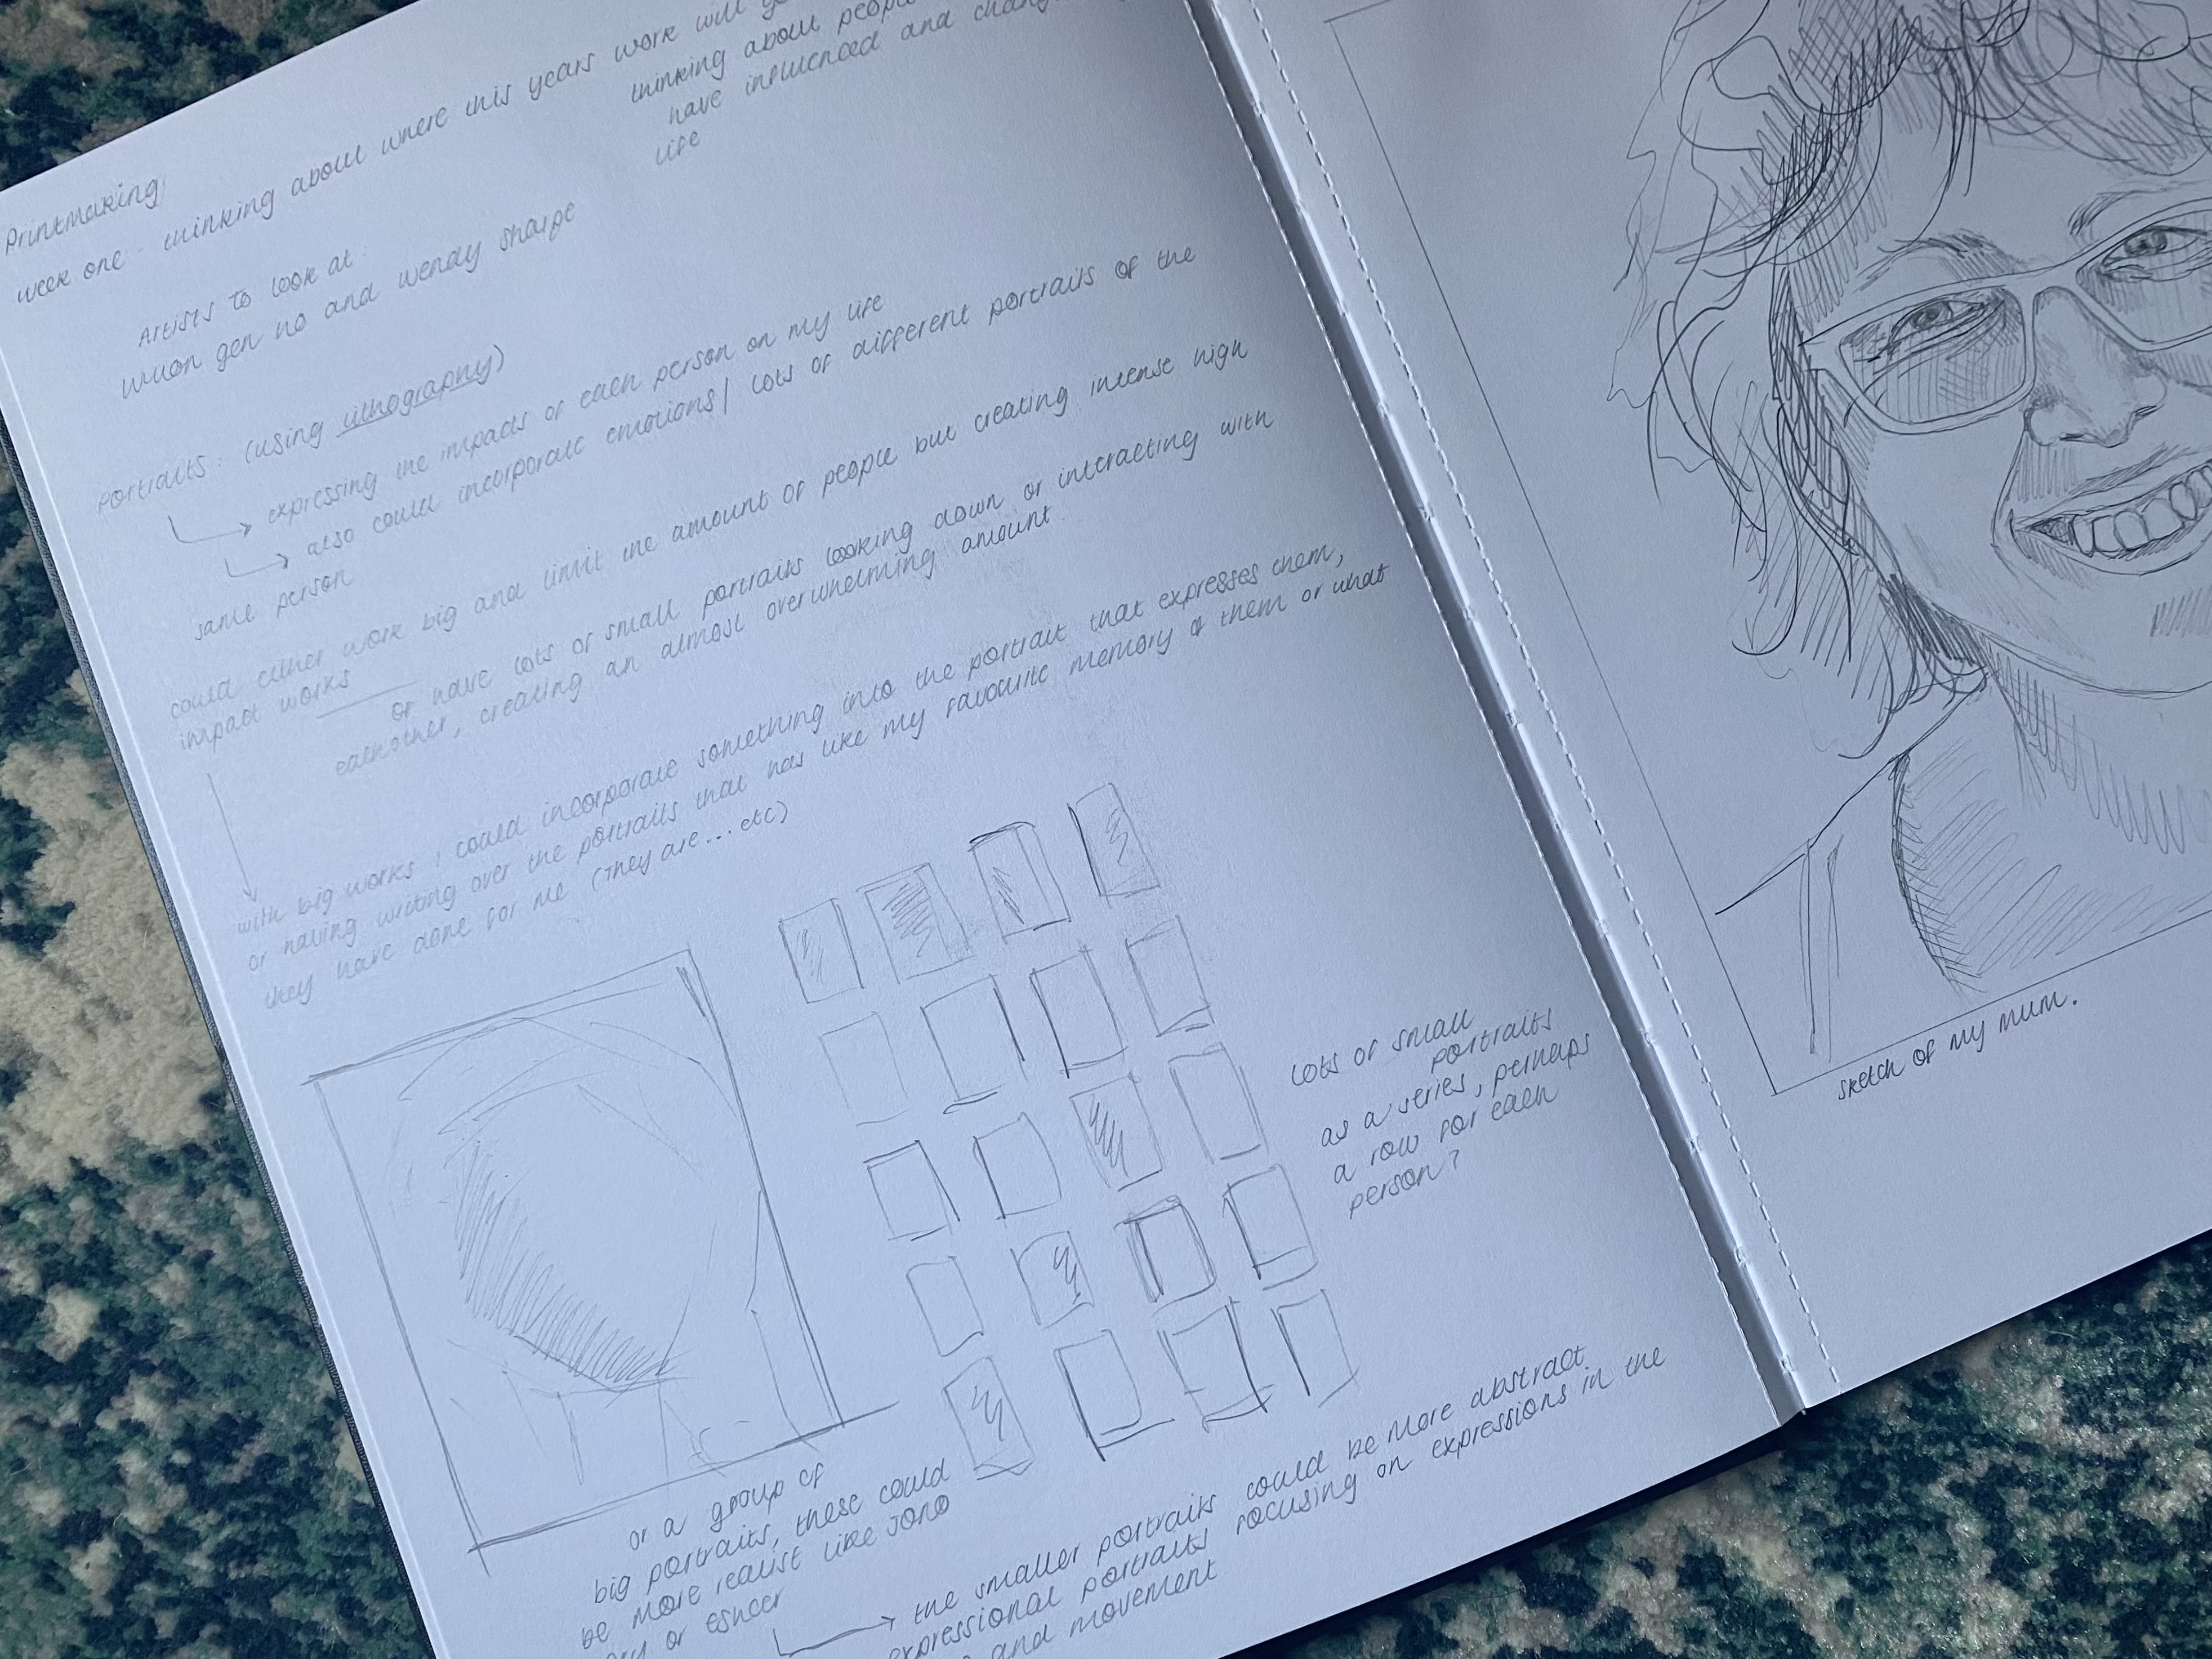 Printmaking
week one - thinking about where this years work will
thinking about people
have influenced and
life
Artists to look at:
wuon gen no and wendy sharpe
portraits: (using lithography)
expressing the impacts of each person on my life
also could incorporate emotions / lots of different portraits of the
same person
could either work big and limit the amount of people but creating intense high
impact works
or have lots of small portraits looking down or interacting with
eachother, creating an almost overwhelming amount
with big works i could incorporate something into the portrait that expresses them,
or having writing over the portraits that has like my favourite memory of them or what
they have done for me (they are... etc)
lots of small
portraits
as a series, perhaps
a row for each
person?
or a group of
big portraits, these could
be more realist like Jono
or escher
the smaller portraits could be more abstract
expressional portraits focusing on expressions in the
and movement
sketch of my mum.